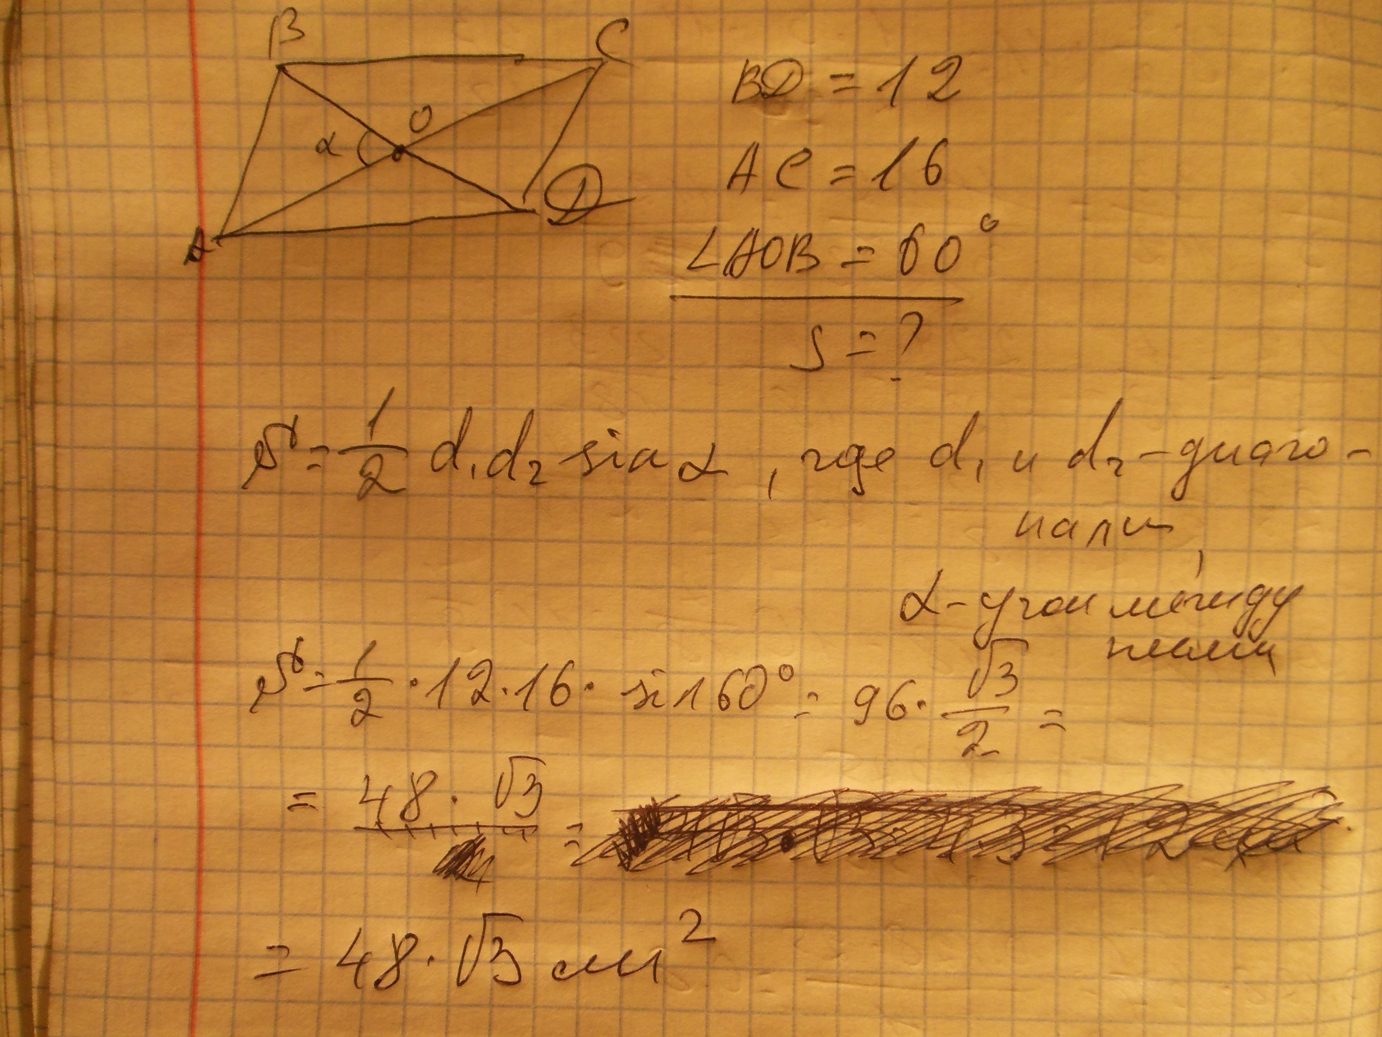 B
C
α
O
A
D
BD = 12
AC = 16
∠AOB = 60°
S = ?
S = 1/2 d₁d₂ sin α, где d₁ и d₂ - диаго-
нали,
α - угол между
ними
S = 1/2 · 12 · 16 · sin 60° = 96 · √3/2 =
= 48 · √3 =
= 48 · √3 см²